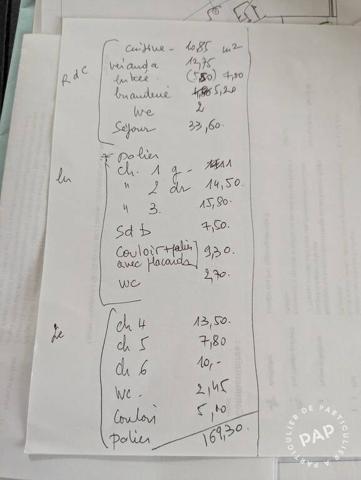 RdC
cuisine - 10,85 m2
véranda 12,75
entrée 7,00
buanderie 5,20
WC 2
Séjour 33,60
1er
* palier
ch. 1 g - 11
" 2 dr 14,50.
" 3. 15,80.
Sdb 7,50.
Couloir + palier 9,30
avec placards
WC 2,70.
2e
ch 4 13,50.
ch 5 7,80
ch 6 10,-
WC. 2,45
Couloir 5,10
palier
169,30.
DE PARTICULIER À PARTICULIER
PAP